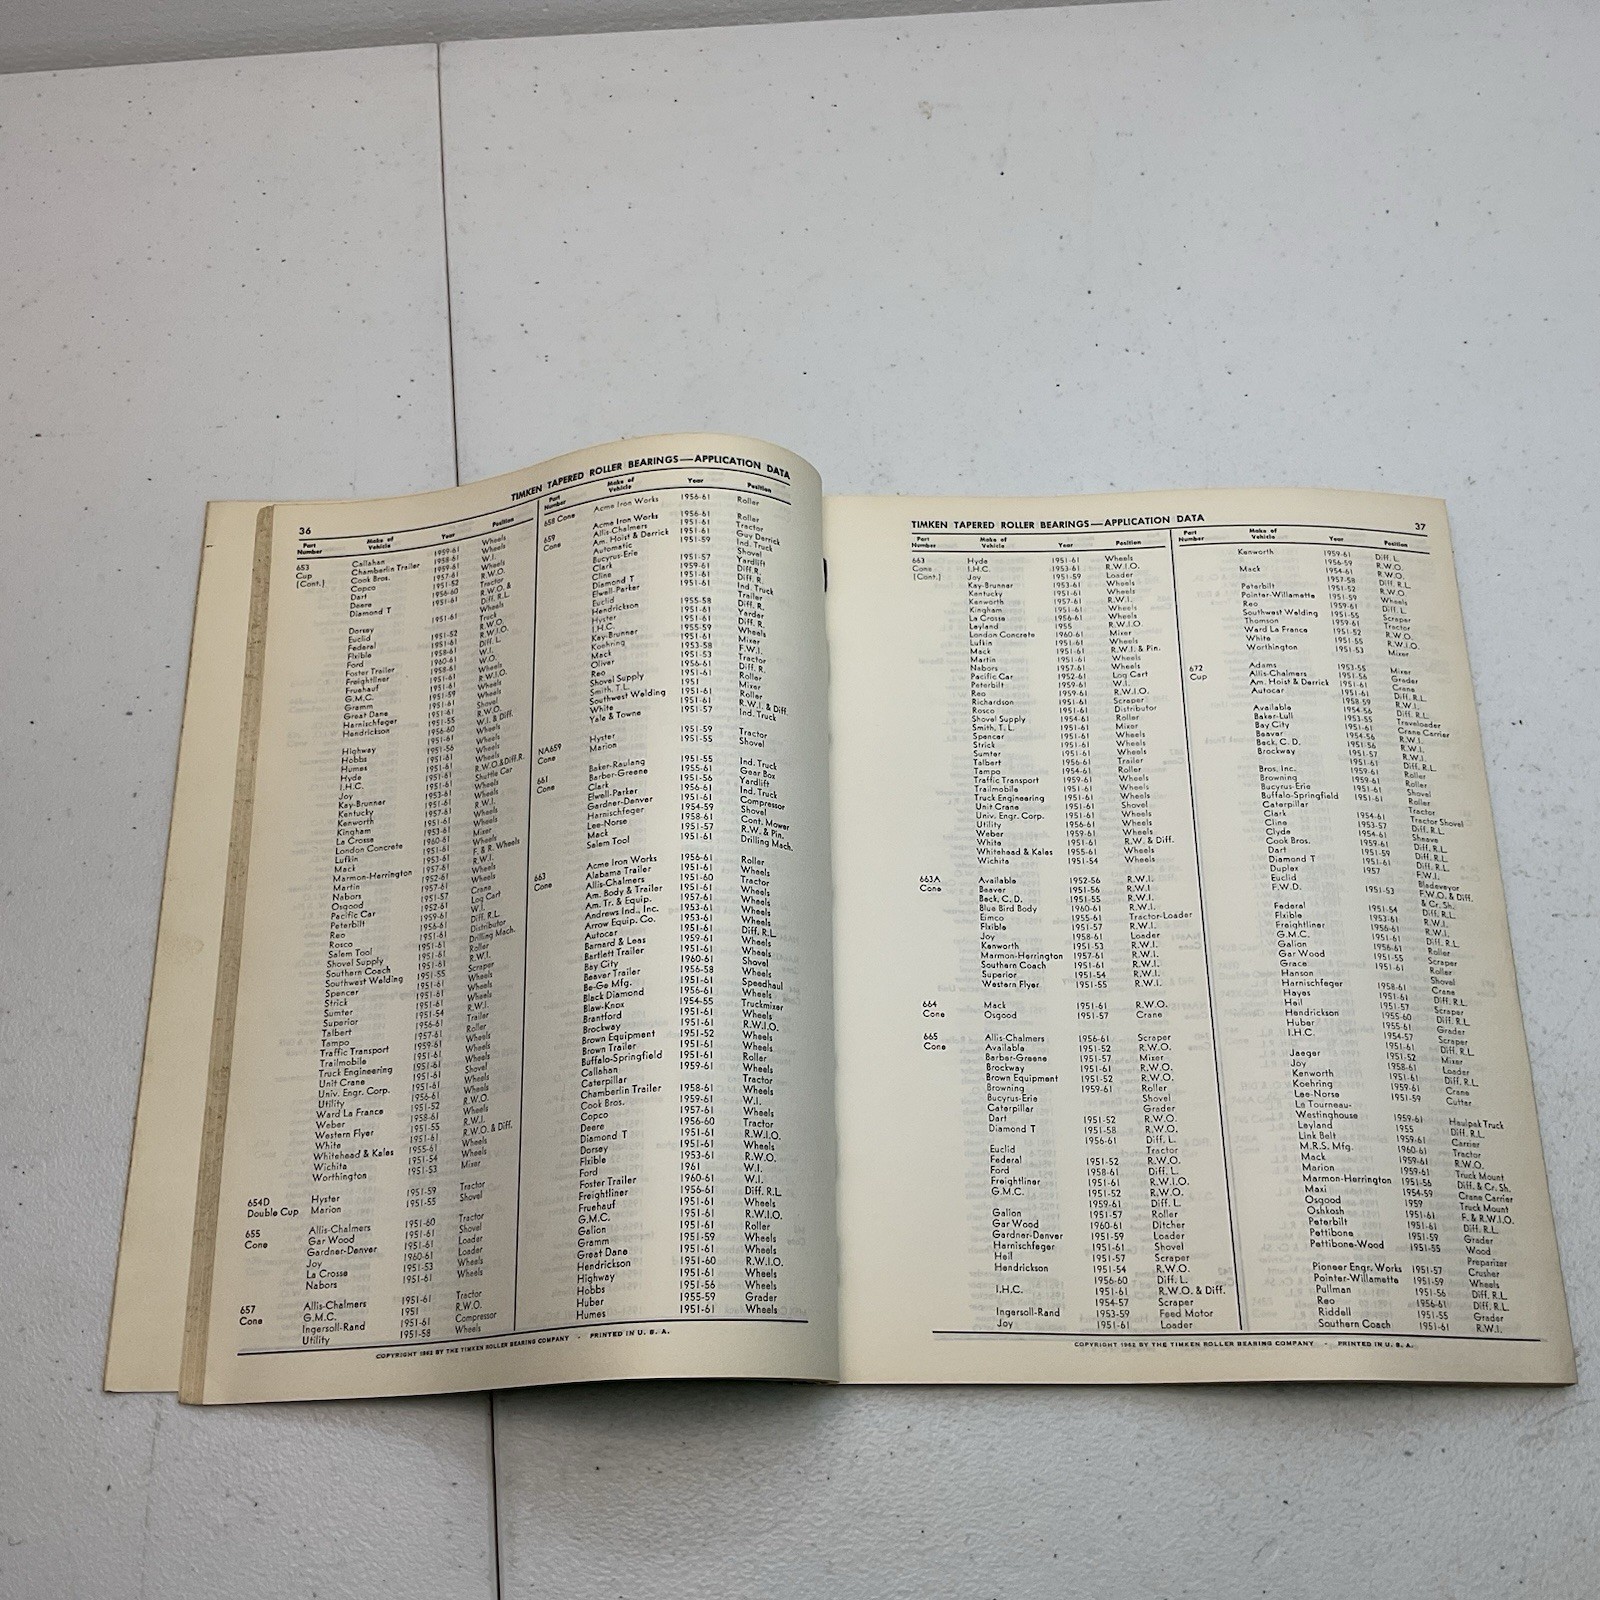 36
TIMKEN TAPERED ROLLER BEARINGS—APPLICATION DATA
Part Number Make of Vehicle Year Position
653 Cup (Cont.)
Callahan 1959-61 Wheels
Chamberlin Trailer 1958-61 Wheels
Cook Bros. 1959-61 W.I.
Copco 1957-61 Wheels
Dart 1951-52 R.W.O.
Deere 1956-60 Tractor
Diamond T 1951-61 R.W.O. & Diff. R.L.
Dorsey 1951-61 Wheels
Euclid Truck
Federal 1951-52 R.W.O.
Flxible 1951-61 R.W.I.O.
Ford 1958-61 Diff. L.
Foster Trailer 1960-61 W.I.
Freightliner 1958-61 W.O.
Fruehauf 1951-61 Wheels
G.M.C. 1951-61 R.W.I.O.
Gramm 1951-59 Wheels
Great Dane 1951-61 Wheels
Harnischfeger 1951-61 Shovel
Hendrickson 1951-55 R.W.O.
1956-60 W.I. & Diff.
Highway 1951-61 Wheels
Hobbs 1951-56 Wheels
Humes 1951-61 Wheels
Hyde 1951-61 Wheels
I.H.C. 1951-61 R.W.O.&Diff.R.
Joy 1951-61 Shuttle Car
Kay-Brunner 1953-61 Wheels
Kentucky 1951-61 Wheels
Kenworth 1957-61 R.W.I.
Kingham 1951-61 Wheels
La Crosse 1953-61 Wheels
London Concrete 1960-61 Mixer
Lufkin 1951-61 Wheels
Mack 1953-61 F. & R. Wheels
Marmon-Herrington 1957-61 R.W.I.
Martin 1952-61 Wheels
Nabors 1957-61 Wheels
Osgood 1951-57 Crane
Pacific Car 1952-61 Log Cart
Peterbilt 1959-61 W.I.
Reo 1956-61 Diff. R.L.
Rosco 1951-61 Distributor
Salem Tool Drilling Mach.
Shovel Supply 1951-61 Roller
Southern Coach 1951-61 R.W.I.
Southwest Welding 1951-55 Scraper
Spencer 1951-61 Wheels
Strick 1951-61 Wheels
Sumter 1951-61 Wheels
Superior 1951-54 R.W.I.
Talbert 1956-61 Trailer
Tampo 1957-61 Roller
Traffic Transport 1959-61 Wheels
Trailmobile 1951-61 Wheels
Truck Engineering 1951-61 Wheels
Unit Crane 1951-61 Shovel
Univ. Engr. Corp. 1951-61 Wheels
Utility 1956-61 Wheels
Ward La France 1951-52 R.W.O.
Weber 1958-61 Wheels
Western Flyer 1951-55 R.W.I.
White 1951-61 R.W.O. & Diff.
Whitehead & Kales 1955-61 Wheels
Wichita 1951-54 Wheels
Worthington 1951-53 Mixer
654D Double Cup
Hyster 1951-59 Tractor
Marion 1951-55 Shovel
655 Cone
Allis-Chalmers 1951-60 Tractor
Gar Wood 1951-61 Shovel
Gardner-Denver 1951-61 Loader
Joy 1960-61 Loader
La Crosse 1951-53 Wheels
Nabors 1951-61 Wheels
657 Cone
Allis-Chalmers 1951-61 Tractor
G.M.C. 1951 R.W.O.
Ingersoll-Rand 1951-61 Compressor
Utility 1951-58 Wheels
Part Number Make of Vehicle Year Position
658 Cone Acme Iron Works 1956-61 Roller
659 Cone
Acme Iron Works 1956-61 Roller
Allis-Chalmers 1951-61 Tractor
Am. Hoist & Derrick 1951-61 Guy Derrick
Automatic 1951-59 Ind. Truck
Bucyrus-Erie Shovel
Clark 1951-57 Yardlift
Cline 1959-61 Diff.R.
Diamond T 1951-61 Diff. R.
Elwell-Parker 1951-61 Ind. Truck
Euclid Trailer
Hendrickson 1955-58 Diff. R.
Hyster 1951-61 Yarder
I.H.C. 1955-59 Diff. R.
Kay-Brunner 1951-61 Wheels
Koehring 1953-58 Mixer
Mack 1951-53 F.W.I.
Oliver 1956-61 Tractor
Reo 1951-61 Diff. R.
Shovel Supply 1951-61 Roller
Smith, T.L. 1951 Mixer
Southwest Welding 1951-61 Roller
White 1951-61 R.W.I. & Diff.
Yale & Towne 1951-57 Ind. Truck
NA659 Cone
Hyster 1951-59 Tractor
Marion 1951-55 Shovel
661 Cone
Baker-Raulang 1951-55 Ind. Truck
Barber-Greene 1955-61 Gear Box
Clark 1951-56 Yardlift
Elwell-Parker 1956-61 Ind. Truck
Gardner-Denver 1951-61 Compressor
Harnischfeger 1954-59 Shovel
Lee-Norse 1958-61 Cont. Mower
Mack 1951-57 R.W. & Pin.
Salem Tool 1951-61 Drilling Mach.
663 Cone
Acme Iron Works 1956-61 Roller
Alabama Trailer 1951-61 Wheels
Allis-Chalmers 1951-60 Tractor
Am. Body & Trailer 1951-61 Wheels
Am. Tr. & Equip. 1957-61 Wheels
Andrews Ind., Inc. 1953-61 Wheels
Arrow Equip. Co. 1953-61 Wheels
Autocar 1951-61 Diff. R.L.
Barnard & Leas 1959-61 Wheels
Bartlett Trailer 1951-61 Wheels
Bay City 1960-61 Shovel
Beaver Trailer 1956-58 Wheels
Be-Ge Mfg. 1951-61 Speedhaul
Black Diamond 1956-61 Wheels
Blaw-Knox 1954-55 Truckmixer
Brantford 1951-61 Wheels
Brockway 1951-61 R.W.I.O.
Brown Equipment 1951-52 Wheels
Brown Trailer 1951-61 Wheels
Buffalo-Springfield 1951-61 Roller
Callahan 1959-61 Wheels
Caterpillar Tractor
Chamberlin Trailer 1958-61 Wheels
Cook Bros. 1959-61 W.I.
Copco 1957-61 Wheels
Deere 1956-60 Tractor
Diamond T 1951-61 R.W.I.O.
Dorsey 1951-61 Wheels
Flxible 1953-61 R.W.O.
Ford 1961 W.I.
Foster Trailer 1960-61 W.I.
Freightliner 1956-61 Diff. R.L.
Fruehauf 1951-61 Wheels
G.M.C. 1951-61 R.W.I.O.
Galion 1951-61 Roller
Gramm 1951-59 Wheels
Great Dane 1951-61 Wheels
Hendrickson 1951-60 R.W.I.O.
Highway 1951-61 Wheels
Hobbs 1951-56 Wheels
Huber 1955-59 Grader
Humes 1951-61 Wheels
COPYRIGHT 1962 BY THE TIMKEN ROLLER BEARING COMPANY - PRINTED IN U. S. A.
TIMKEN TAPERED ROLLER BEARINGS—APPLICATION DATA
37
Part Number Make of Vehicle Year Position
663 Cone (Cont.)
Hyde 1951-61 Wheels
I.H.C. 1953-61 R.W.I.O.
Joy 1951-59 Loader
Kay-Brunner 1953-61 Wheels
Kentucky 1951-61 Wheels
Kenworth 1957-61 R.W.I.
Kingham 1951-61 Wheels
La Crosse 1956-61 Wheels
Leyland 1955 R.W.I.O.
London Concrete 1960-61 Mixer
Lufkin 1951-61 Wheels
Mack 1951-61 R.W.I. & Pin.
Martin 1951-61 Wheels
Nabors 1957-61 Wheels
Pacific Car 1952-61 Log Cart
Peterbilt 1959-61 W.I.
Reo 1959-61 R.W.I.O.
Richardson 1951-61 Scraper
Rosco 1951-61 Distributor
Shovel Supply 1954-61 Roller
Smith, T. L. 1951-61 Mixer
Spencer 1951-61 Wheels
Strick 1951-61 Wheels
Sumter 1951-61 Wheels
Talbert 1956-61 Trailer
Tampo 1954-61 Roller
Traffic Transport 1959-61 Wheels
Trailmobile 1951-61 Wheels
Truck Engineering 1951-61 Wheels
Unit Crane 1951-61 Shovel
Univ. Engr. Corp. 1951-61 Wheels
Utility 1956-61 Wheels
Weber 1959-61 Wheels
White 1951-61 R.W. & Diff.
Whitehead & Kales 1955-61 Wheels
Wichita 1951-54 Wheels
663A Cone
Available 1952-56 R.W.I.
Beaver 1951-56 R.W.I
Beck, C. D. 1951-55 R.W.I.
Blue Bird Body 1960-61 R.W.I.
Eimco 1955-61 Tractor-Loader
Flxible 1951-57 R.W.I.
Joy 1958-61 Loader
Kenworth 1951-53 R.W.I.
Marmon-Herrington 1957-61 R.W.I.
Southern Coach 1951-61 R.W.I.
Superior 1951-54 R.W.I.
Western Flyer 1951-55 R.W.I.
664 Cone
Mack 1951-61 R.W.O.
Osgood 1951-57 Crane
665 Cone
Allis-Chalmers 1956-61 Scraper
Available 1951-52 R.W.O.
Barber-Greene 1951-57 Mixer
Brockway 1951-61 R.W.O.
Brown Equipment 1951-52 R.W.O.
Browning 1959-61 Roller
Bucyrus-Erie Shovel
Caterpillar Grader
Dart 1951-52 R.W.O.
Diamond T 1951-58 R.W.O.
1956-61 Diff. L.
Euclid Tractor
Federal 1951-52 R.W.O.
Ford 1958-61 Diff. L.
Freightliner 1951-61 R.W.I.O.
G.M.C. 1951-52 R.W.O.
1959-61 Diff. L.
Galion 1951-57 Roller
Gar Wood 1960-61 Ditcher
Gardner-Denver 1951-59 Loader
Harnischfeger 1951-61 Shovel
Heil 1951-57 Scraper
Hendrickson 1951-54 R.W.O.
1956-60 Diff. L.
I.H.C. 1951-61 R.W.O. & Diff.
1954-57 Scraper
Ingersoll-Rand 1953-59 Feed Motor
Joy 1951-61 Loader
Part Number Make of Vehicle Year Position
Kenworth 1959-61 Diff. L.
1956-59 R.W.O.
Mack 1954-61 R.W.O.
1957-58 Diff. R.L.
Peterbilt 1951-52 R.W.O.
Pointer-Willamette 1951-59 Wheels
Reo 1959-61 Diff. L.
Southwest Welding 1951-55 Scraper
Thomson 1959-61 Tractor
Ward La France 1951-52 R.W.O.
White 1951-55 R.W.I.O.
Worthington 1951-53 Mixer
672 Cup
Adams 1953-55 Mixer
Allis-Chalmers 1951-56 Grader
Am. Hoist & Derrick 1951-61 Crane
Autocar 1951-61 Diff. R.L.
1958-59 R.W.I.
Available 1954-56 Diff. R.L.
Baker-Lull 1953-55 Traveloader
Bay City 1951-61 Crane Carrier
Beaver 1954-56 R.W.I.
Beck, C. D. 1951-56 R.W.I.
Brockway 1951-57 R.W.I.
1951-61 Diff. R.L.
Bros, Inc. 1959-61 Roller
Browning 1959-61 Roller
Bucyrus-Erie Shovel
Buffalo-Springfield 1951-61 Roller
Caterpillar Tractor
Clark 1954-61 Tractor Shovel
Cline 1953-57 Diff. R.L.
Clyde 1954-61 Sheave
Cook Bros. 1959-61 Diff. R.L.
Dart 1951-59 Diff. R.L.
Diamond T 1951-61 Diff. R.L.
Duplex 1957 F.W.I.
Euclid Bladevayor
F.W.D. 1951-53 F.W.O. & Diff. & Cr. Sh.
Federal 1951-54 Diff. R.L.
Flxible 1953-61 R.W.I.
Freightliner 1956-61 Diff. R.L.
G.M.C. 1951-61 Diff. R.L.
Galion 1956-61 Roller
Gar Wood 1951-55 Scraper
Grace 1951-61 Roller
Hanson Shovel
Harnischfeger 1958-61 Crane
Hayes 1951-61 Diff. R.L.
Heil 1951-57 Scraper
Hendrickson 1955-60 Diff. R.L.
Huber 1955-61 Grader
I.H.C. 1954-57 Scraper
1951-61 Diff. R.L.
Jaeger 1951-52 Mixer
Joy 1958-61 Loader
Kenworth 1951-61 Diff. R.L.
Koehring 1959-61 Crane
Lee-Norse 1951-59 Cutter
Le Tourneau-
Westinghouse 1959-61 Haulpak Truck
Leyland 1955 Diff. R.L.
Link Belt 1959-61 Carrier
M.R.S. Mfg. 1960-61 Tractor
Mack 1959-61 R.W.O.
Marion 1959-61 Truck Mount
Marmon-Herrington 1951-56 Diff. & Cr. Sh.
Maxi 1954-59 Crane Carrier
Osgood 1959 Truck Mount
Oshkosh 1951-61 F. & R.W.I.O.
Peterbilt 1951-61 Diff. R.L.
Pettibone 1951-59 Grader
Pettibone-Wood 1951-55 Wood Preparizer
Pioneer Engr. Works 1951-57 Crusher
Pointer-Willamette 1951-59 Wheels
Pullman 1951-56 Diff. R.L.
Reo 1956-61 Diff. R.L.
Riddell 1951-55 Grader
Southern Coach 1951-61 R.W.I.
COPYRIGHT 1962 BY THE TIMKEN ROLLER BEARING COMPANY - PRINTED IN U. S. A.